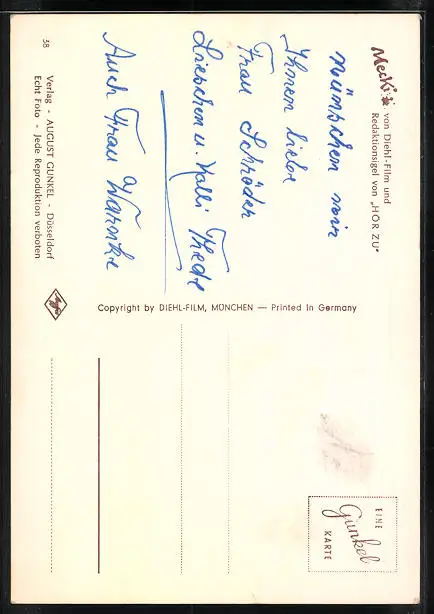 Mecki von Diehl-Film und
Redaktionsigel von „HÖR ZU"
wünschen wir
Ihnen liebe
Frau Schröder
Lieschen u. Kalli Thede
Auch Frau Warnke
Verlag - AUGUST GUNKEL - Düsseldorf
Echt Foto - Jede Reproduktion verboten
38
Agfa
Copyright by DIEHL-FILM, MÜNCHEN — Printed in Germany
EINE
Gunkel
KARTE